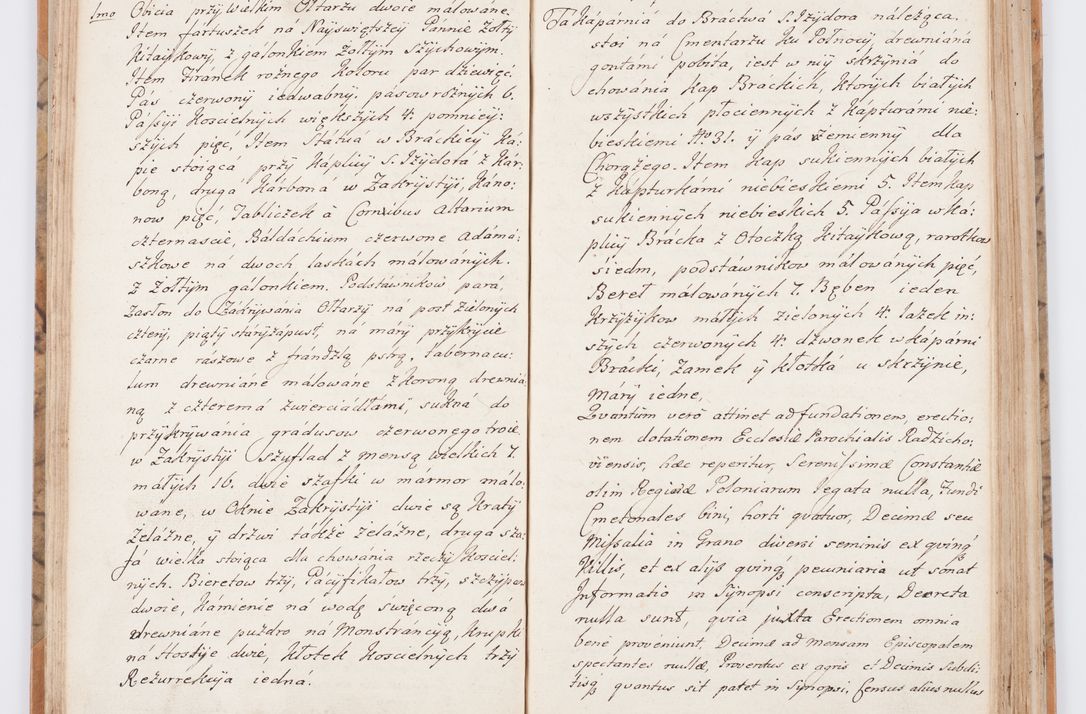 1mo Obicia przy wielkim Ołtarzu dwoie malowane.
Item fartuszek ná Nayswiętszey Pánnie Zołty
Kitaykowy, z gálonkiem Zołtym Szychowym.
Item Firánek rożnego Koloru par dziewięć.
Pás czerwony iedwabny. pasow rożnych 6.
Pássyi Koscielnych większych 4. pomnieÿ:
szych pięc, Item Státuá w Bráckiey Ká:
pie stoiąca przy Káplicy S. Izydora z Kár:
boną, druga Kárbona w Zakrystyi, Káno:
now pięć, Tabliczek à Cornibus Altarium
czternascie, Báldáchium czerwone Adámá:
szkowe ná dwoch laskách málowanych.
z Zołtym gálonkiem. Podstáwnikow para,
Zasłon do Zákrywánia Ołtarzy ná post zielonych
cztery, piąty stáry zápust, ná máry przykrycie
czarne raszowe z frándzlą pstrą, tabernacu:
lum drewniáne málowáne z koroną drewniá:
ną z czteremá zwierciádłámi, sukná do
przykrywánia grádusow czerwonego troie
w Zákrystyi Szuflad z mensą wielkich 7.
máłych 10. dwie száfki w mármor málo:
wane, w Oknie Zakrystyi dwie są Kraty
Żelázne, ÿ drzwi tádże żelázne, druga szá:
fá wielka stoiąca dla chowánia rzeczy Kosciel:
nych. Bieretow trzy, Pácyfikałow trzy, szczypcow
dwoie, Kámienie ná wodę swięconą dwá
drewniáne puzdro ná Monstráncyą, Krupki
ná Hostyie dwie, Kłotek Koscielnych trzy
Rezurrekcya iedná.
Tá Kápárniá do Bráctwá S. Izydora náleżąca.
stoi ná Cmentarzu ku Połnocy, drewniána
gontámi pobita, iest w niÿ skrzyniá do
chowánia Kap Bráckich, Ktorych białych
wszystkich płociennych z Kápturámi nie:
bieskiemi No 31. ÿ pás rzemienny dla
Chorążego. Item Kap sukiennych białych
z Kápturkámi niebieskiemi 5. Item kap
sukiennych niebieskich 5. Pássyja w Ká:
plicy Brácka z Otoczką Kitaykową, rarotkow
siedm, podstáwnikow málowanych pięć,
Beret málowánych 7. Bęben ieden
Krzyżykow máłych zielonych 4. lasek in:
szych czerwonych 4. dzwonek w Kápárni
Brácki, Zamek ÿ kłotká u skrzynie,
Máry iedne,
Quantùm verò attinet ad fundationem, erectio:
nem dotationem Ecclesiæ Parochialis Radzicho:
viensis, hæc reperitur, Serenissimæ Constantiæ
olim Reginæ Poloniarum legata nulla, Fundi
Cmetonales bini, horti quatuor, Decimæ seu
Missalia in Grano diversi seminis ex quinq
Villis, et ex alijs quinq pecuniaria ut sonat
Informatio in Synopsi conscripta, Decreta
nulla sunt, quia juxta Erectionem omnia
bene proveniunt, Decimæ ad mensam Episcopalem
spectantes nullæ, Proventus ex agris et Decimis Subdi:
tisq quantus sit patet in Synopsi, Census alius nullus